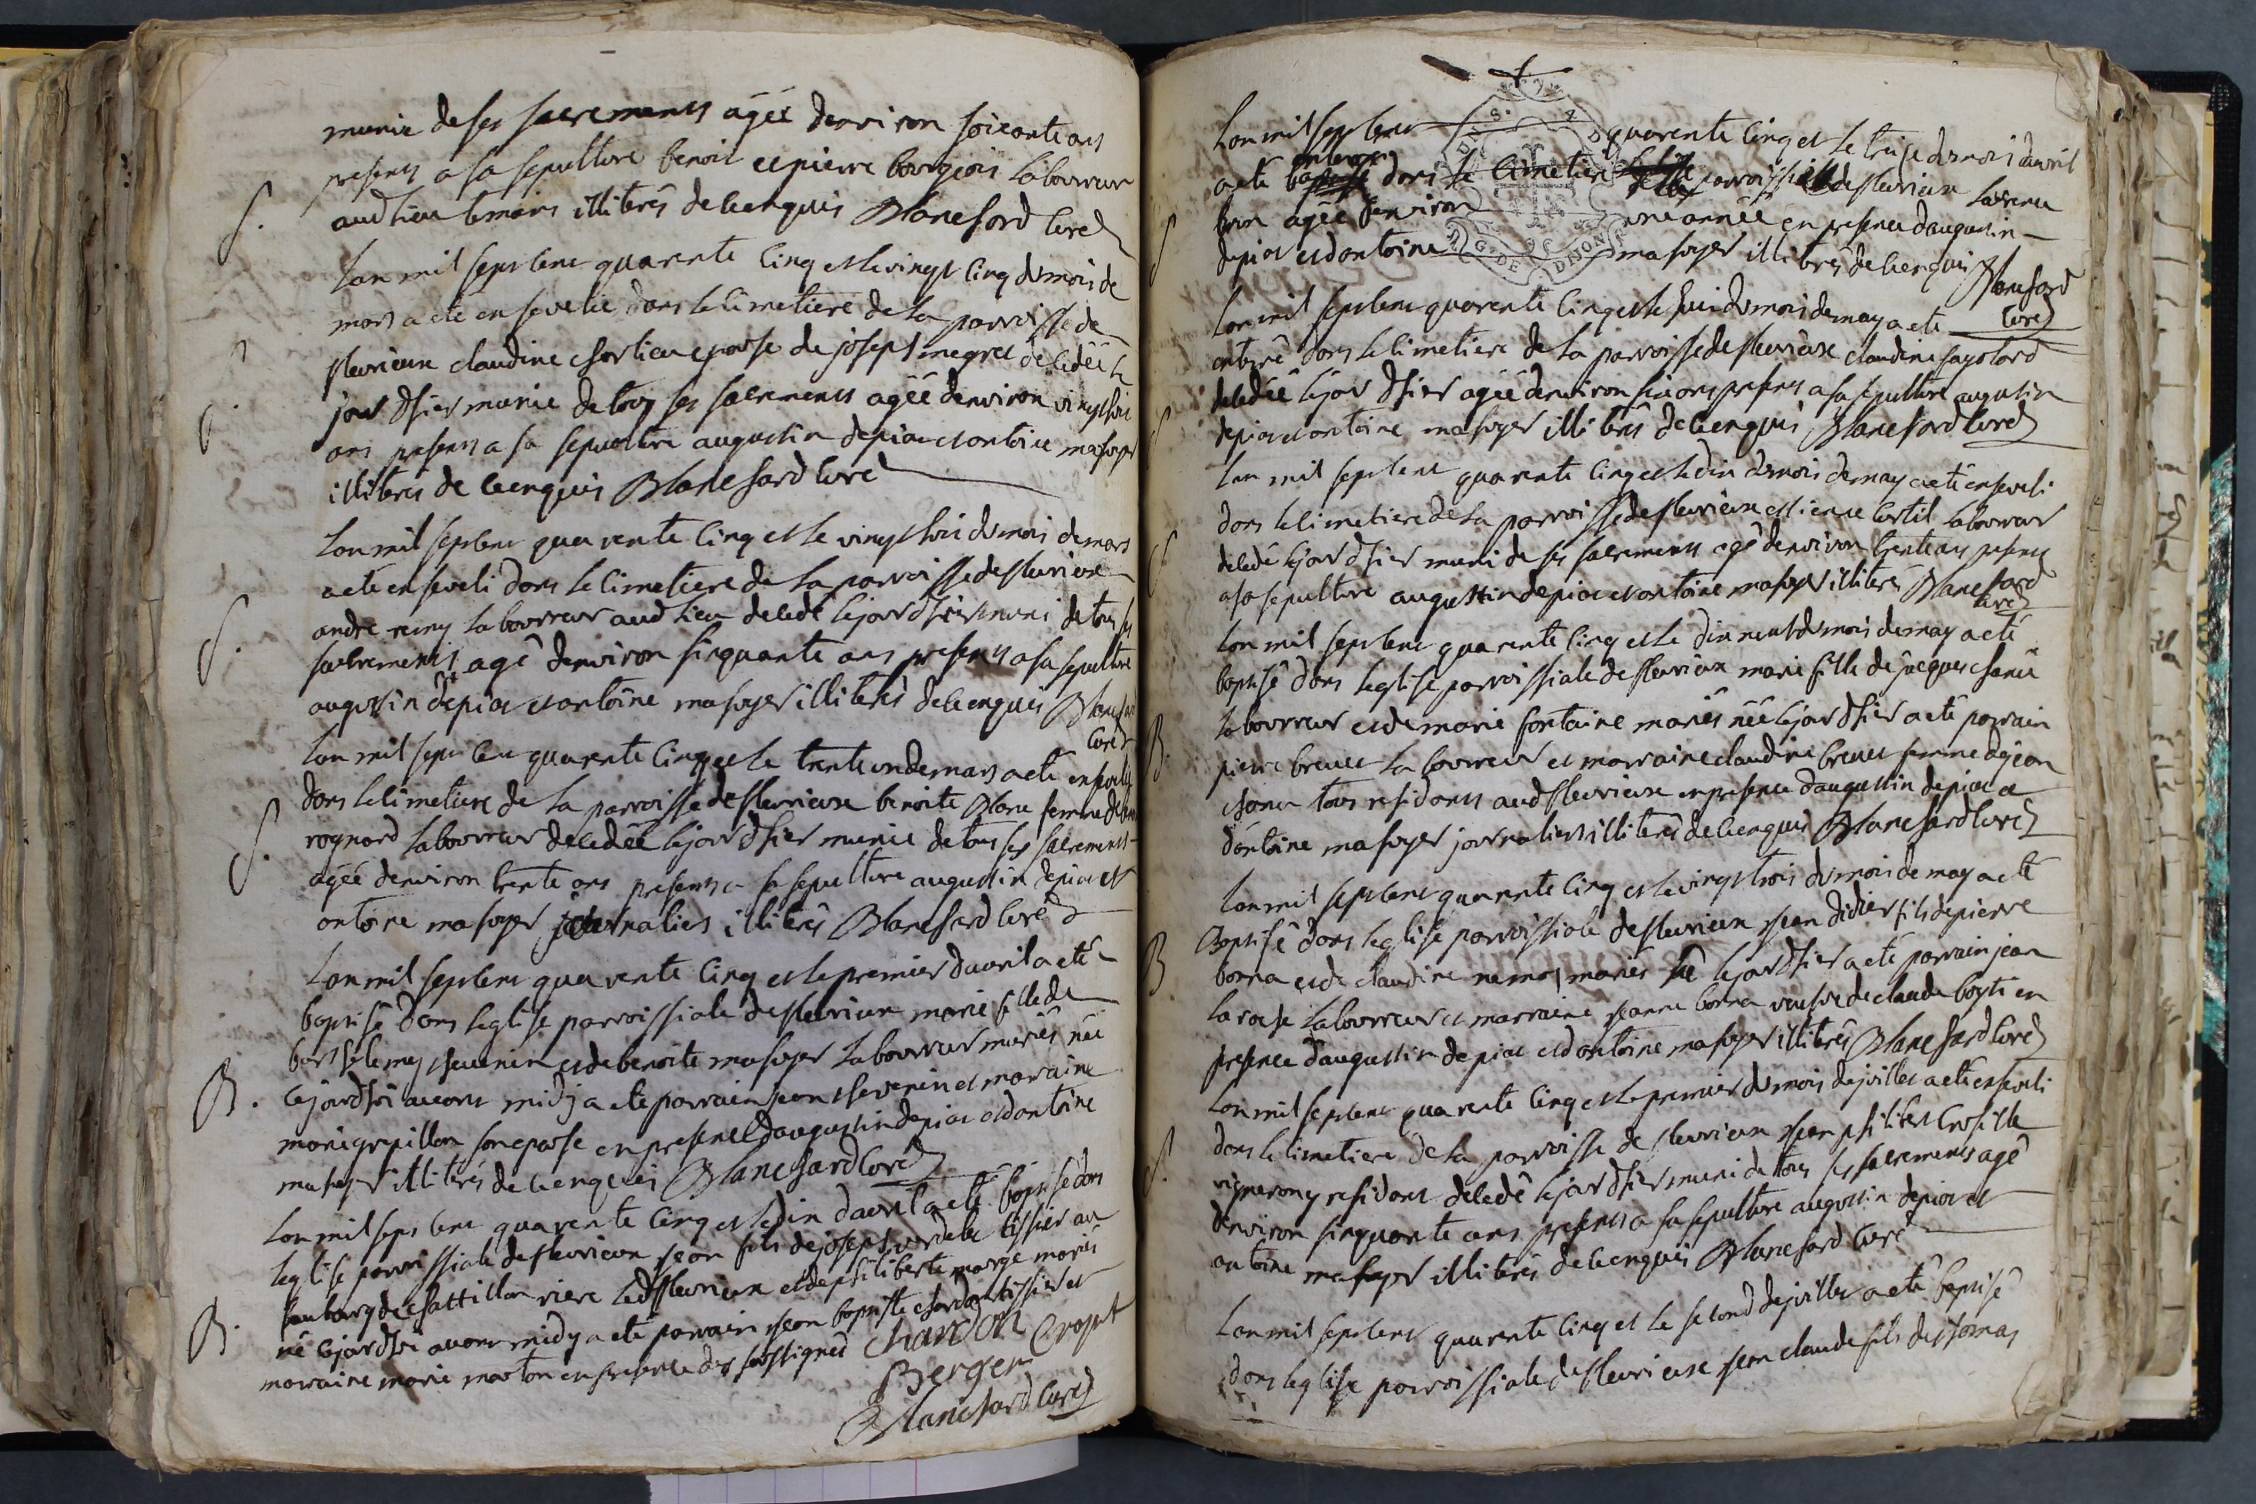 munie de ses sacrements agée denviron soixante ans
presents a sa sepulture benoit et pierre bourgeois laboureur
aud lieu temoins illiterés de ce enquis Blanchard curé
S.
Lan mil sept cent quarente cinq et le vingt cinq du mois de
mars a eté ensevelie dans le cimetiere de la parroisse de
fleurieux claudine charlieu epouse de joseph megret decedéé le
jour dhier munie de tous ses sacrements agéé denviron vingt huit
ans presents a sa sepulture augustin depias et antoine masoyer
illiterés de ce enquis Blanchard curé
Lan mil sept cent quarente cinq et le vingt huit du mois de mars
a eté enseveli dans le cimetiere de la parroisse de fleurieux
andré remy laboureur aud lieu decedé le jour dhier muni de tous ses
S.
sacrements agé denviron sinquante ans presents a sa sepulture
augustin depias et antoine masoyer illiterés de ce enquis Blanchard
curé
Lan mil sept cent quarente cinq et le trente un de mars a eté ensevelie
dans le cimetiere de la parroisse de fleurieux benoite Blanc femme de
rognard laboureur decedéé le jour dhier munie de tous ses sacrements
S.
agéé denviron trente ans presents a sa sepulture augustin depias et
antoine masoyer journaliers illiterés Blanchard curé
Lan mil sept cent quarente cinq et le premier davril a eté
baptisé dans leglise parroissiale de fleurieux marie fille de
barthelemy thevenin et de benoite masoyer laboureur mariés née
B.
cejourdhui avant midy a eté parrain jean thevenin et marraine
marie grepillon son epouse en presence daugustin depias et dantoine
masoyer illiterés de ce enquis Blanchard curé
Lan mil sept cent quarente cinq et le dix davril a eté baptisé dans
leglise parroissiale de fleurieux jean fils de joseph verdelet tissier au
fauxbourg de chattillon riere led fleurieux et de philiberte marge mariés
B.
né cejourdhui avant midy a eté parrain jean baptiste chardon tissier et
marraine marie marton en presence des soussignés Chardon Cropet
Berger
Blanchard curé
Lan mil sept cent quarente cinq et le treize du mois davril
a eté enterré dans le cimetiere parroissial de fleurieux
agéé denviron une année en presence daugustin
depias et dantoine masoyer illiterés de ce enquis Blanchard
curé
Lan mil sept cent quarente cinq et le huit du mois de may a eté
enterré dans le cimetiere de la parroisse de fleurieux claudine sagotard
decedéé le jour dhier agéé denviron six ans presents a sa sepulture augustin
depias et antoine masoyer illiterés de ce enquis Blanchard curé
Lan mil sept cent quarente cinq et le dix du mois de may a eté enseveli
dans le cimetiere de la parroisse de fleurieux etienne curtil laboureur
decedé le jour dhier muni de ses sacrements agé denviron trente ans presents
a sa sepulture augustin depias et antoine masoyer illiterés Blanchard
curé
Lan mil sept cent quarente cinq et le dix neuf du mois de may a eté
baptisé dans leglise parroissiale de fleurieux marie fille de jacques chanu
laboureur et de marie fontaine mariés néé le jour dhier a eté parrain
B.
pierre brevet laboureur et marraine claudine brevet femme de jean
chanu tous residants aud fleurieux en presence daugustin depias et
dantoine masoyer journaliers illiterés de ce enquis Blanchard curé
Lan mil sept cent quarente cinq et le vingt trois du mois de may a eté
Baptisé dans leglise parroissiale de fleurieux jean didier fils de pierre
B
borna et de claudine mariés né le jour dhier a eté parrain jean
laroche laboureur et marraine jeanne borna veufve de claude boyti en
presence daugustin depias et dantoine masoyer illiterés Blanchard curé
Lan mil sept cent quarente cinq et le premier du mois de juillet a eté enseveli
dans le cimetiere de la parroisse de fleurieux jean philibert crosille
S.
vigneron y residant decedé le jour dhier muni de tous ses sacrements agé
denviron sinquante ans presents a sa sepulture augustin depias et
antoine masoyer illiterés de ce enquis Blanchard curé
Lan mil sept cent quarente cinq et le second de juillet a eté baptisé
dans leglise parroissiale de fleurieux jean claude fils de thomas